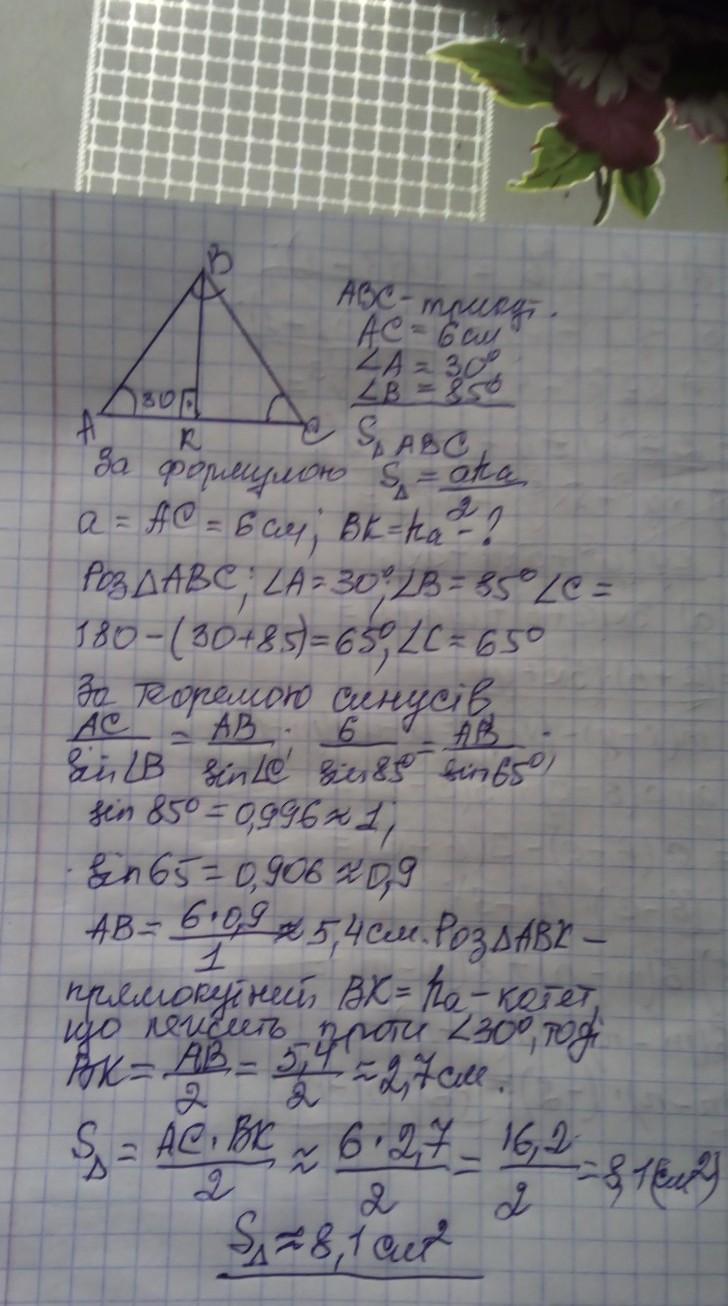 B
ABC - трикут.
AC = 6 см
∠A = 30°
∠B = 85°
A 30 K C
S△ABC
За формулою S△ = aha/2
a = AC = 6 см; BK = ha - ?
Роз△ABC; ∠A = 30°, ∠B = 85° ∠C =
180 - (30+85) = 65°, ∠C = 65°
За теоремою синусів
AC/sin∠B = AB/sin∠C; 6/sin85° = AB/sin65°;
sin 85° = 0,996 ≈ 1;
sin 65 = 0,906 ≈ 0,9
AB = 6·0,9/1 ≈ 5,4 см. Роз△ABK -
прямокутній BK = ha - катет,
що лежить проти ∠30°, тоді
BK = AB/2 = 5,4/2 ≈ 2,7 см.
S△ = AC·BK/2 ≈ 6·2,7/2 = 16,2/2 = 8,1(см²)
S△ ≈ 8,1 см²